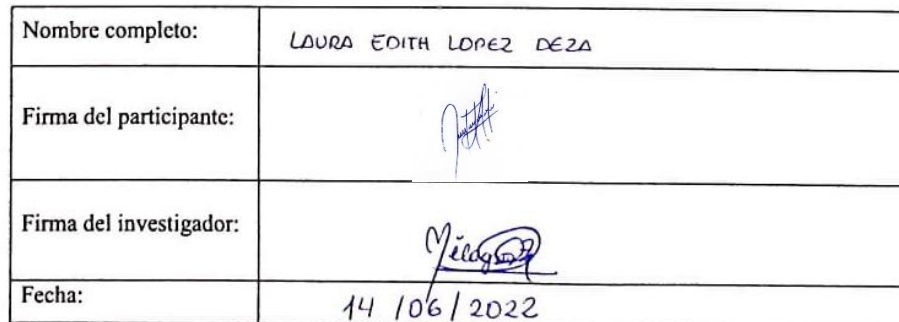 Nombre completo: LAURA EDITH LOPEZ DEZA
Firma del participante:
Firma del investigador:
Fecha: 14 / 06 / 2022